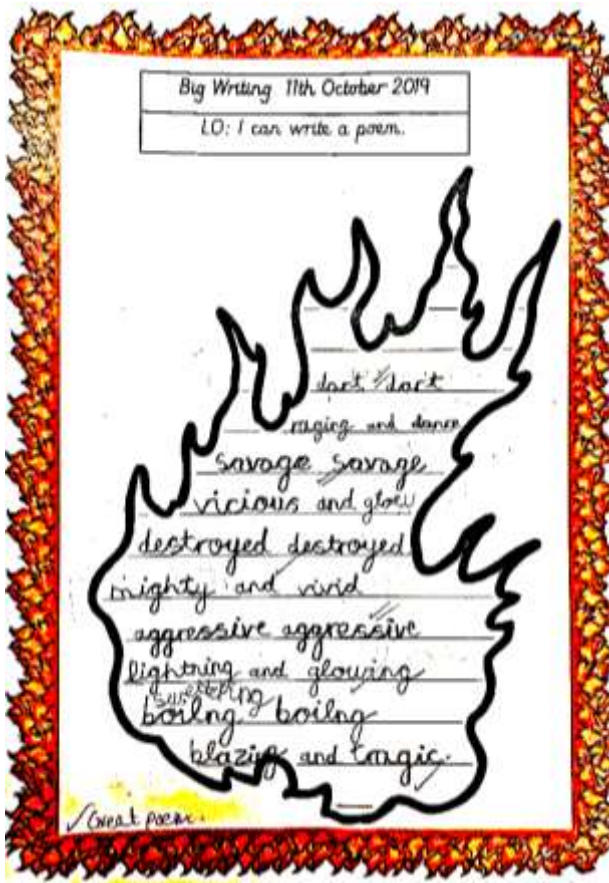 Big Writing 11th October 2019
LO: I can write a poem.
dart dart
raging and dance
savage savage
vicious and glow
destroyed destroyed
mighty and vivid
aggressive aggressive
lightning and glowing
sweltering
boilng boilng
blazing and tragic.
Great poem.